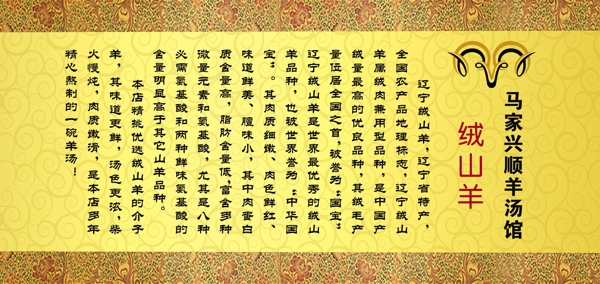 马家兴顺羊汤馆
绒山羊
辽宁绒山羊，辽宁省特产，
全国农产品地理标志，辽宁绒山
羊属绒肉兼用型品种，是中国产
绒量最高的优良品种，其绒毛产
量位居全国之首，被誉为“国宝”
辽宁绒山羊是世界最优秀的绒山
羊品种，也被世界誉为“中华国
宝”。其肉质细嫩、肉色鲜红、
味道鲜美、膻味小，其中肉蛋白
质含量高，脂肪含量低，富含多种
微量元素和氨基酸，尤其是八种
必需氨基酸和两种鲜味氨基酸的
含量明显高于其它山羊品种。
本店精挑优选绒山羊的介子
羊，其味道更鲜，汤色更浓，柴
火慢炖，肉质嫩滑，是本店多年
精心熬制的一碗羊汤！